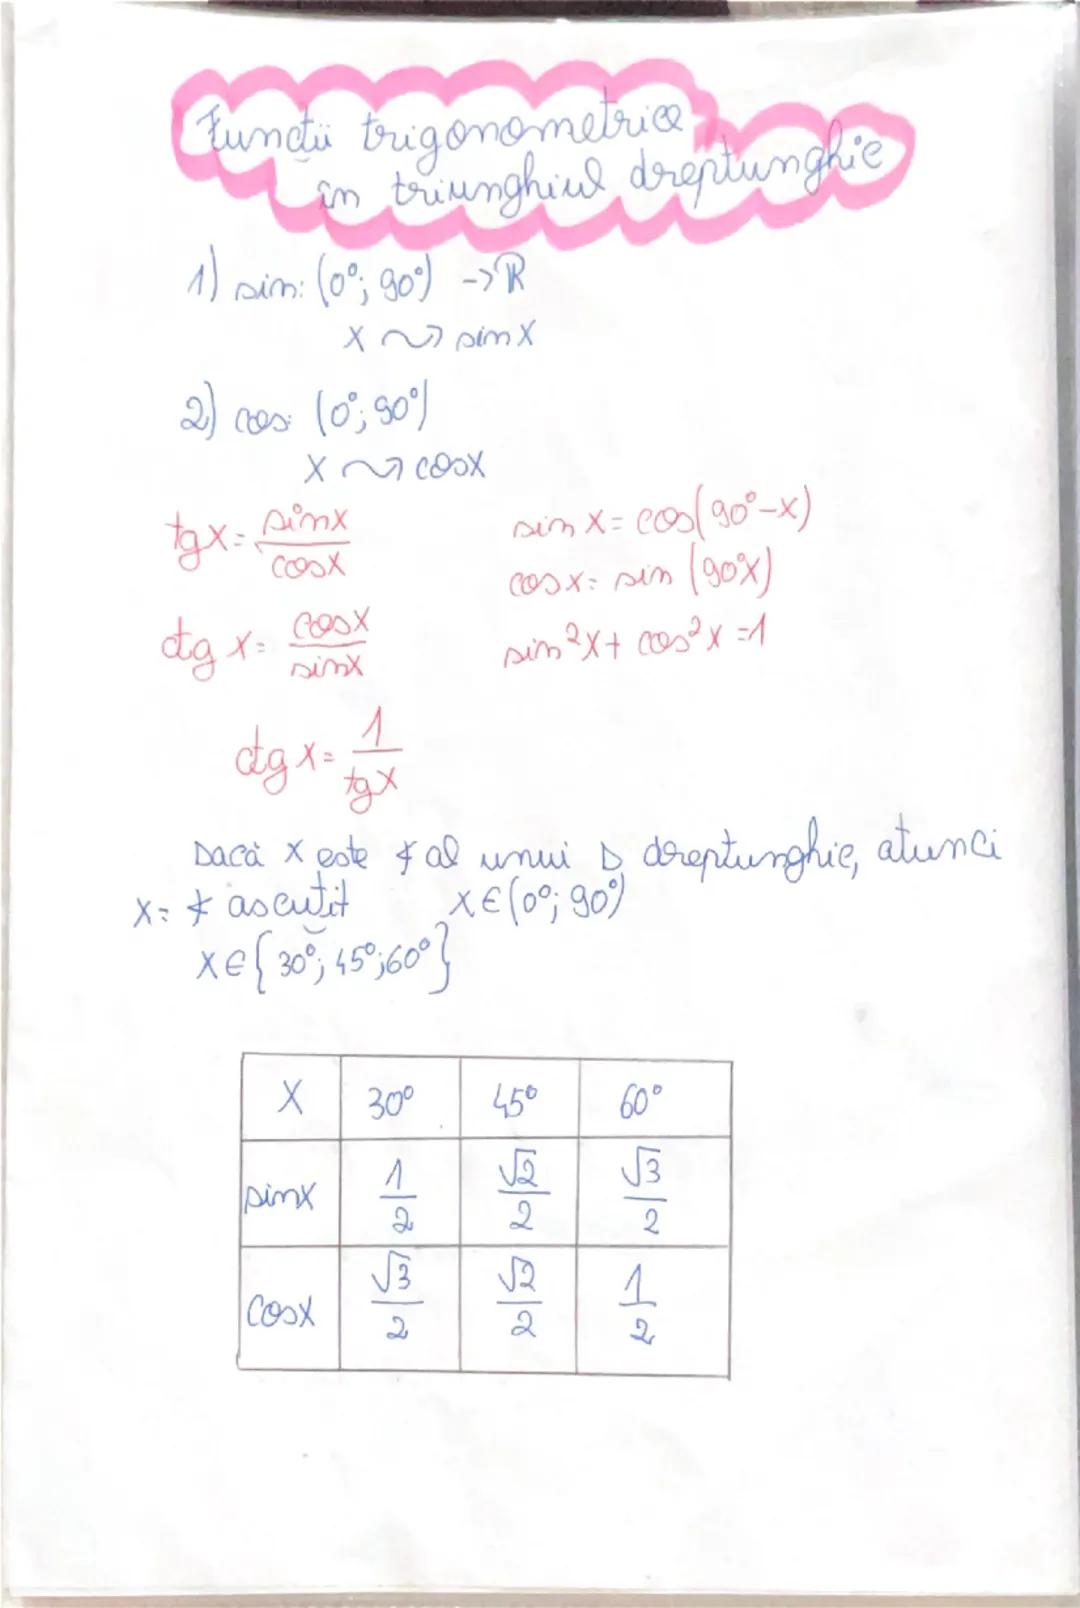 Funcții trigonometrice
în triunghiul dreptunghic
1) sin: (0°; 90°) -> ℝ
x ⤳ sin x
2) cos: (0°; 90°)
x ⤳ cosx
tgx = sinx/cosx
sin x = cos(90°-x)
cosx = sin (90°x)
ctg x = cosx/sinx
sin²x + cos²x = 1
ctg x = 1/tgx
Dacă x este ∢ al unui △ dreptunghic, atunci
x = ∢ ascuțit x∈(0°; 90°)
x∈{30°; 45°; 60°}
x 30° 45° 60°
sinx 1/2 √2/2 √3/2
cosx √3/2 √2/2 1/2